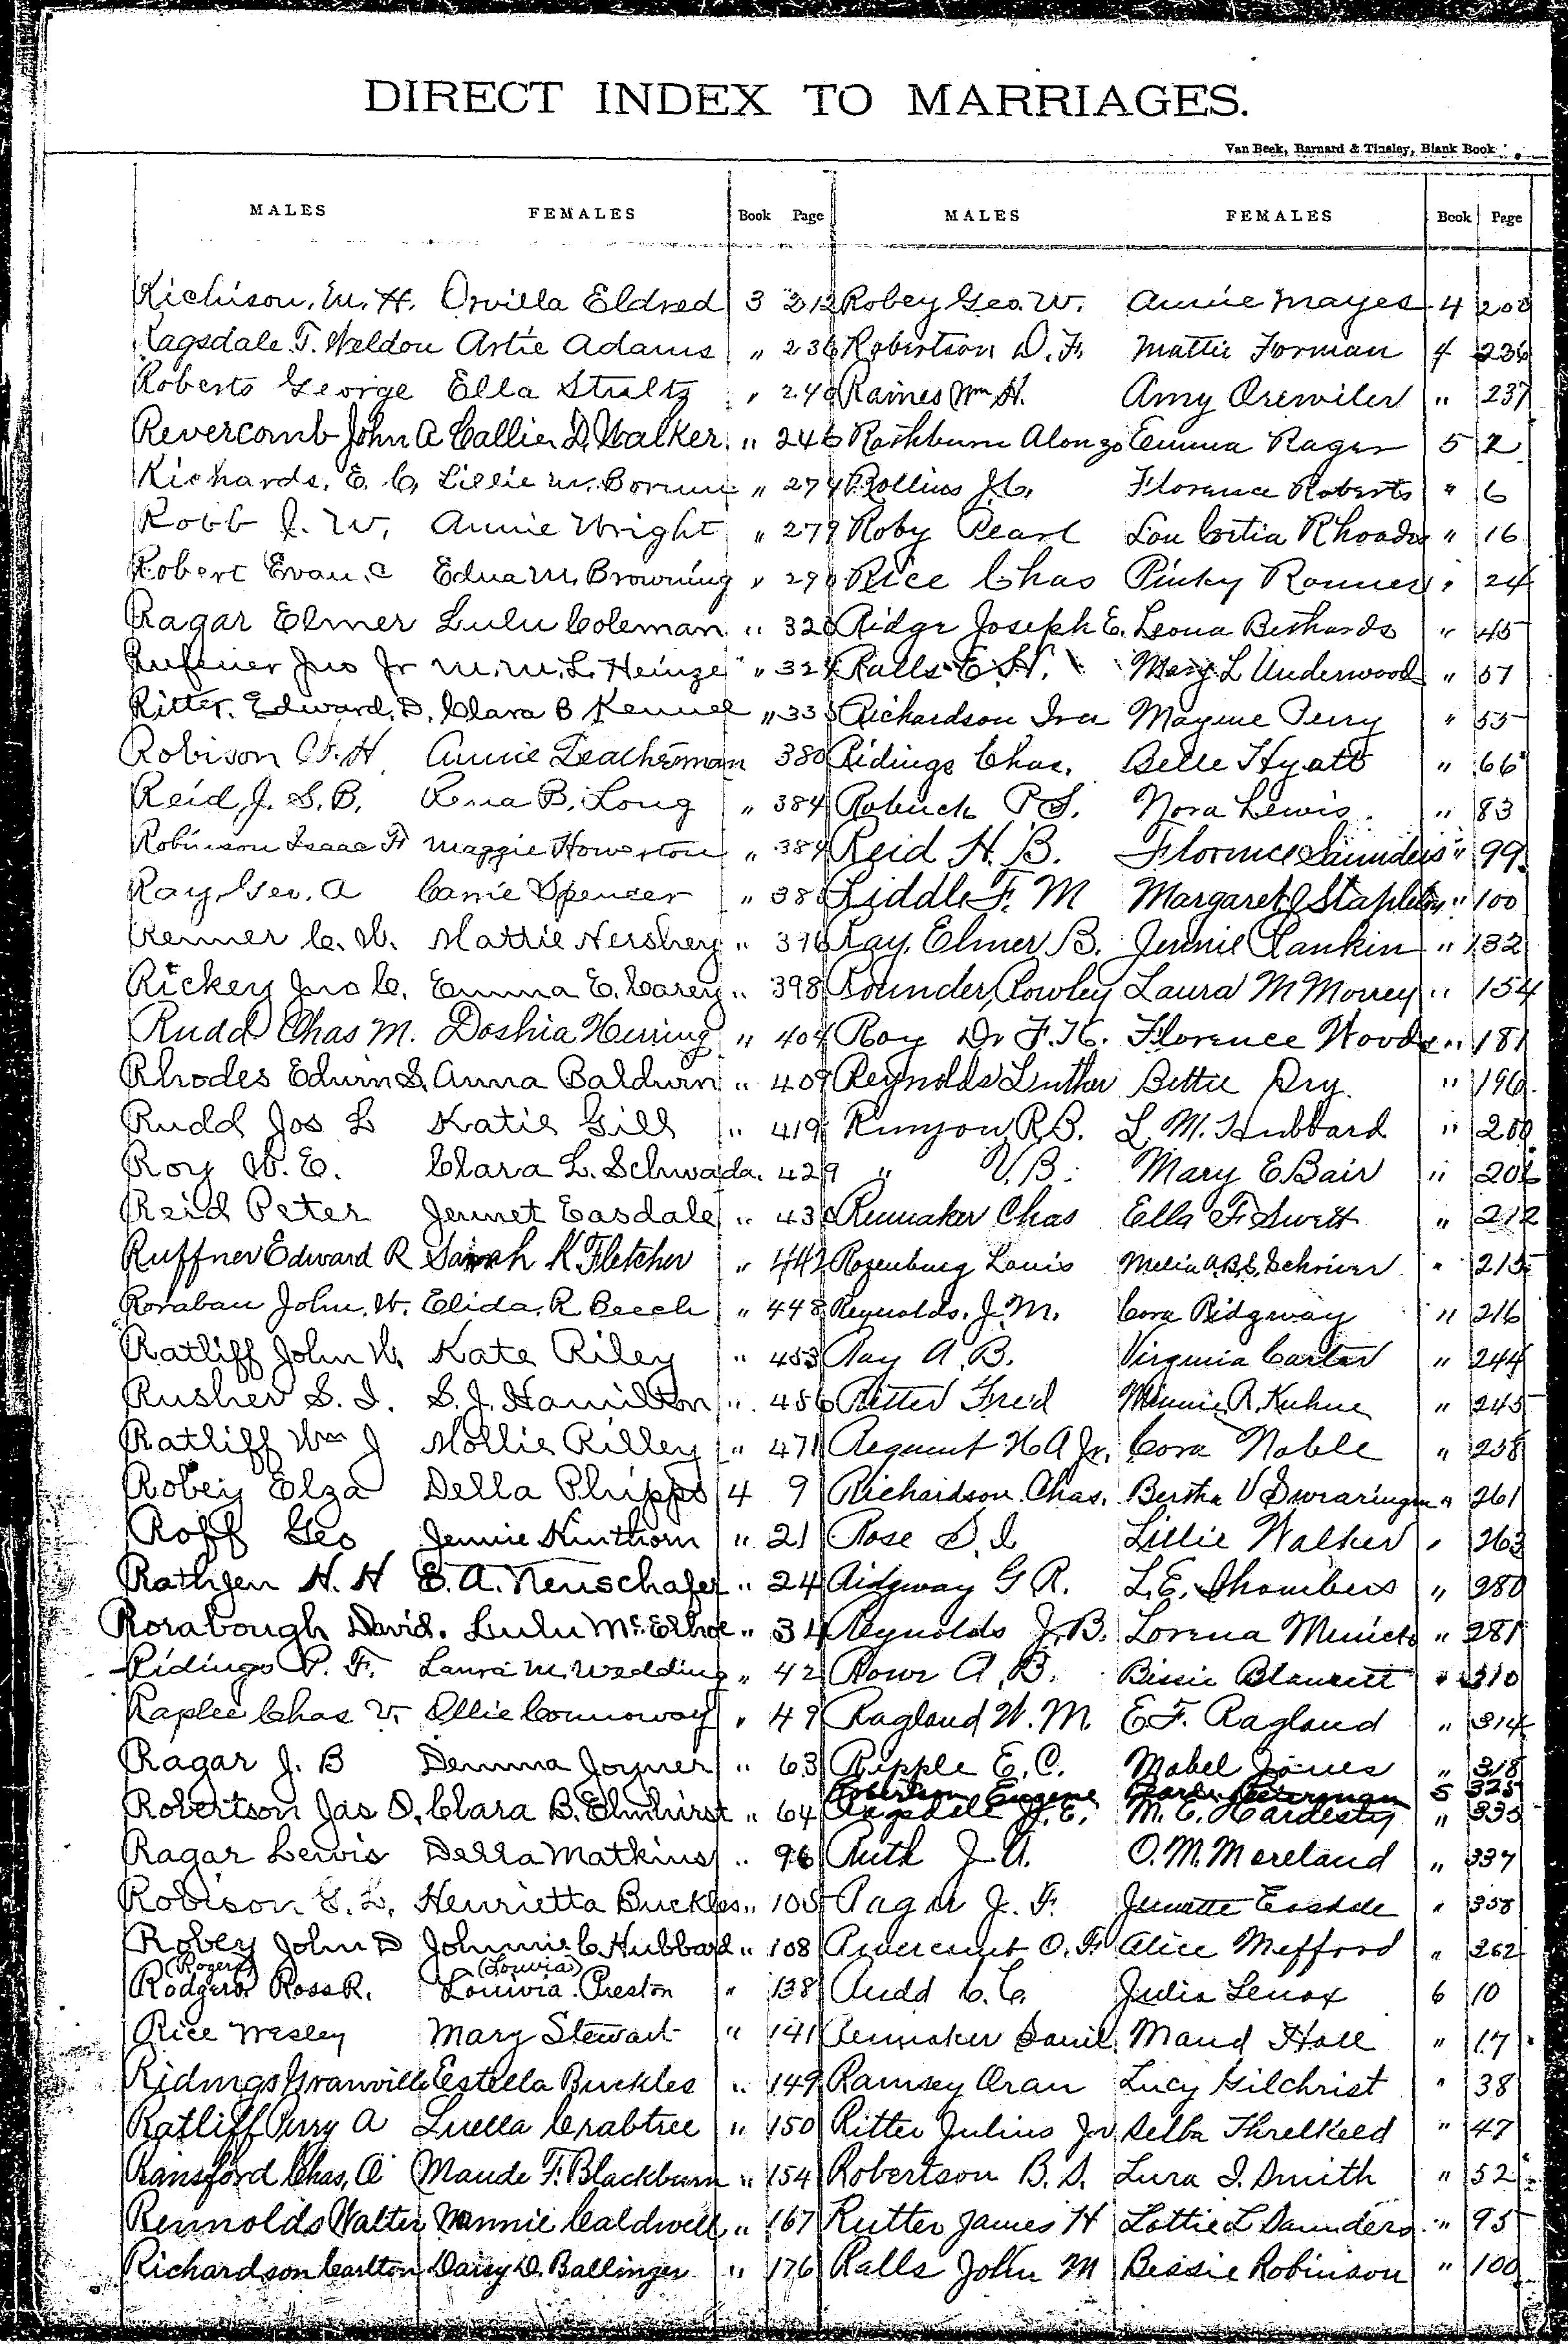 DIRECT INDEX TO MARRIAGES.
Van Beek, Barnard & Tinsley, Blank Book
MALES FEMALES Book Page MALES FEMALES Book Page
Richison, M. H. Orvilla Eldred 3 212 Robey Geo. W. Annie Mayes 4 200
Ragsdale T. Weldon Artie Adams " 236 Robertson D. F. Mattie Forman 4 236
Roberts George Ella Stultz " 240 Raines Wm H. Amy Orewiler " 237
Revercomb John A Callie D. Walker " 246 Rashburn Alonzo Emma Rager 5 2
Richards, E. C. Lillie M. " 274 Rollins J. C. Florence Roberts " 6
Robb J. W. Annie Wright " 279 Roby Pearl Lou Certia Rhoades " 16
Robert Evan. C Edna M. Browning " 290 Rice Chas Pinky Ronner " 24
Ragar Elmer Lulu Coleman " 320 Ridge Joseph E. Leona Berhards " 45
Rufener Jno Jr M. M. L. Heinze " 324 Ralls E. H. Mary L Underwood " 51
Ritter. Edward. D. Clara B Kennel " 335 Richardson Ira Mayme Perry " 55
Robison F. H. Annie Leatherman 380 Ridings Chas. Belle Hyatt " 66
Reid J. S. B. Rena B. Long " 384 Robuck P. S. Nora Lewis " 83
Robinson Isaac F Maggie Howerton " 384 Reid H. B. Florence Saunders " 99
Ray, Geo. A Carrie Spencer " 38 Riddle F. M Margaret J Stapleton " 100
Renner C. W. Mattie Hershey " 396 Ray, Elmer B. Jennie Rankin " 132
Rickey Jno C. Emma E. Carey " 398 Rounder, Rowley Laura M Morrey " 154
Rudd Chas M. Doshia Herring " 404 Roy Dr F. H. Florence Woods " 181
Rhodes Edwin S. Anna Baldwin " 409 Reynolds Luther Bettie Dry " 196
Rudd Jos L Katie Gill " 419 Runyon, R. B. L. M. Hubbard " 200
Roy W. E. Clara L. Schwada. 429 " V. B. Mary E Bair " 206
Reid Peter Jennet Easdale " 430 Renmaker Chas Ella F. Swett " 212
Ruffner Edward R Sarah K Fletcher " 442 Rozenburg Louis Melia A.B.S. Schriver " 215
Roraban John. W. Elida. R Beech " 448 Reynolds. J. M. Cora Ridgway " 216
Ratliff John W. Kate Riley " 453 Ray A. B. Virginia Carter " 244
Rusher S. I. S. J. Hamilton " 456 Ritter Fred Minnie R. Kuhne " 245
Ratliff Wm J Mollie Rilley " 471 H A Jr. Cora Noble " 258
Robey Elza Della Phipps 4 9 Richardson Chas. Bertha V Swearingen " 261
Roff Geo Jennie Hinthorn " 21 Rose S. I. Lillie Walker " 263
Rathjen H. H E. A. Neuschafer " 24 Ridgway G R. L. E. Shombers " 280
Rorabough David. Lulu McElhoe " 34 Reynolds J. B. Lorena Minick " 281
Ridings P. F. Laura M. Wedding " 42 Rowe A. B. Bissie Blancett " 310
Raplee Chas V. Ollie Connoway " 49 Ragland W. M. E. F. Ragland " 314
Ragar J. B Demma Joyner " 63 Ripple E. C. Mabel Jones " 318
Robertson Eugene 5 325
Robertson Jas O. Clara B. Elmhirst " 64 Ragsdale J. E. M. E. Hardesty " 335
Ragar Lewis Della Matkins " 96 Ruth J. A. O. M. Moreland " 337
Robison E. L. Henrietta Buckles " 105 Ragar J. F. Jenette Easdale " 358
Robey John D Johnnie C Hubbard " 108 Revercomb O. F. Alice Mefford " 362
(Rogers) (Louvia)
Rodgers Ross R. Louivia Preston " 138 Rudd C. C. Julia Lenox 6 10
Rice Wesley Mary Stewart " 141 Renmaker Daniel Maud Hall " 17
Ridings Granville Estella Buckles " 149 Ramsey Oran Lucy Gilchrist " 38
Ratliff Perry A Luella Crabtree " 150 Ritter Julius Jr Selba Threlkeld " 47
Ransford Chas, A Maude F. Blackburn " 154 Robertson B. S. Lura I. Smith " 52
Rennolds Walter Nannie Caldwell " 167 Rutter James H Lottie L Saunders " 95
Richardson Carlton Daisy D. Ballinger " 176 Ralls John M Bessie Robinson " 100